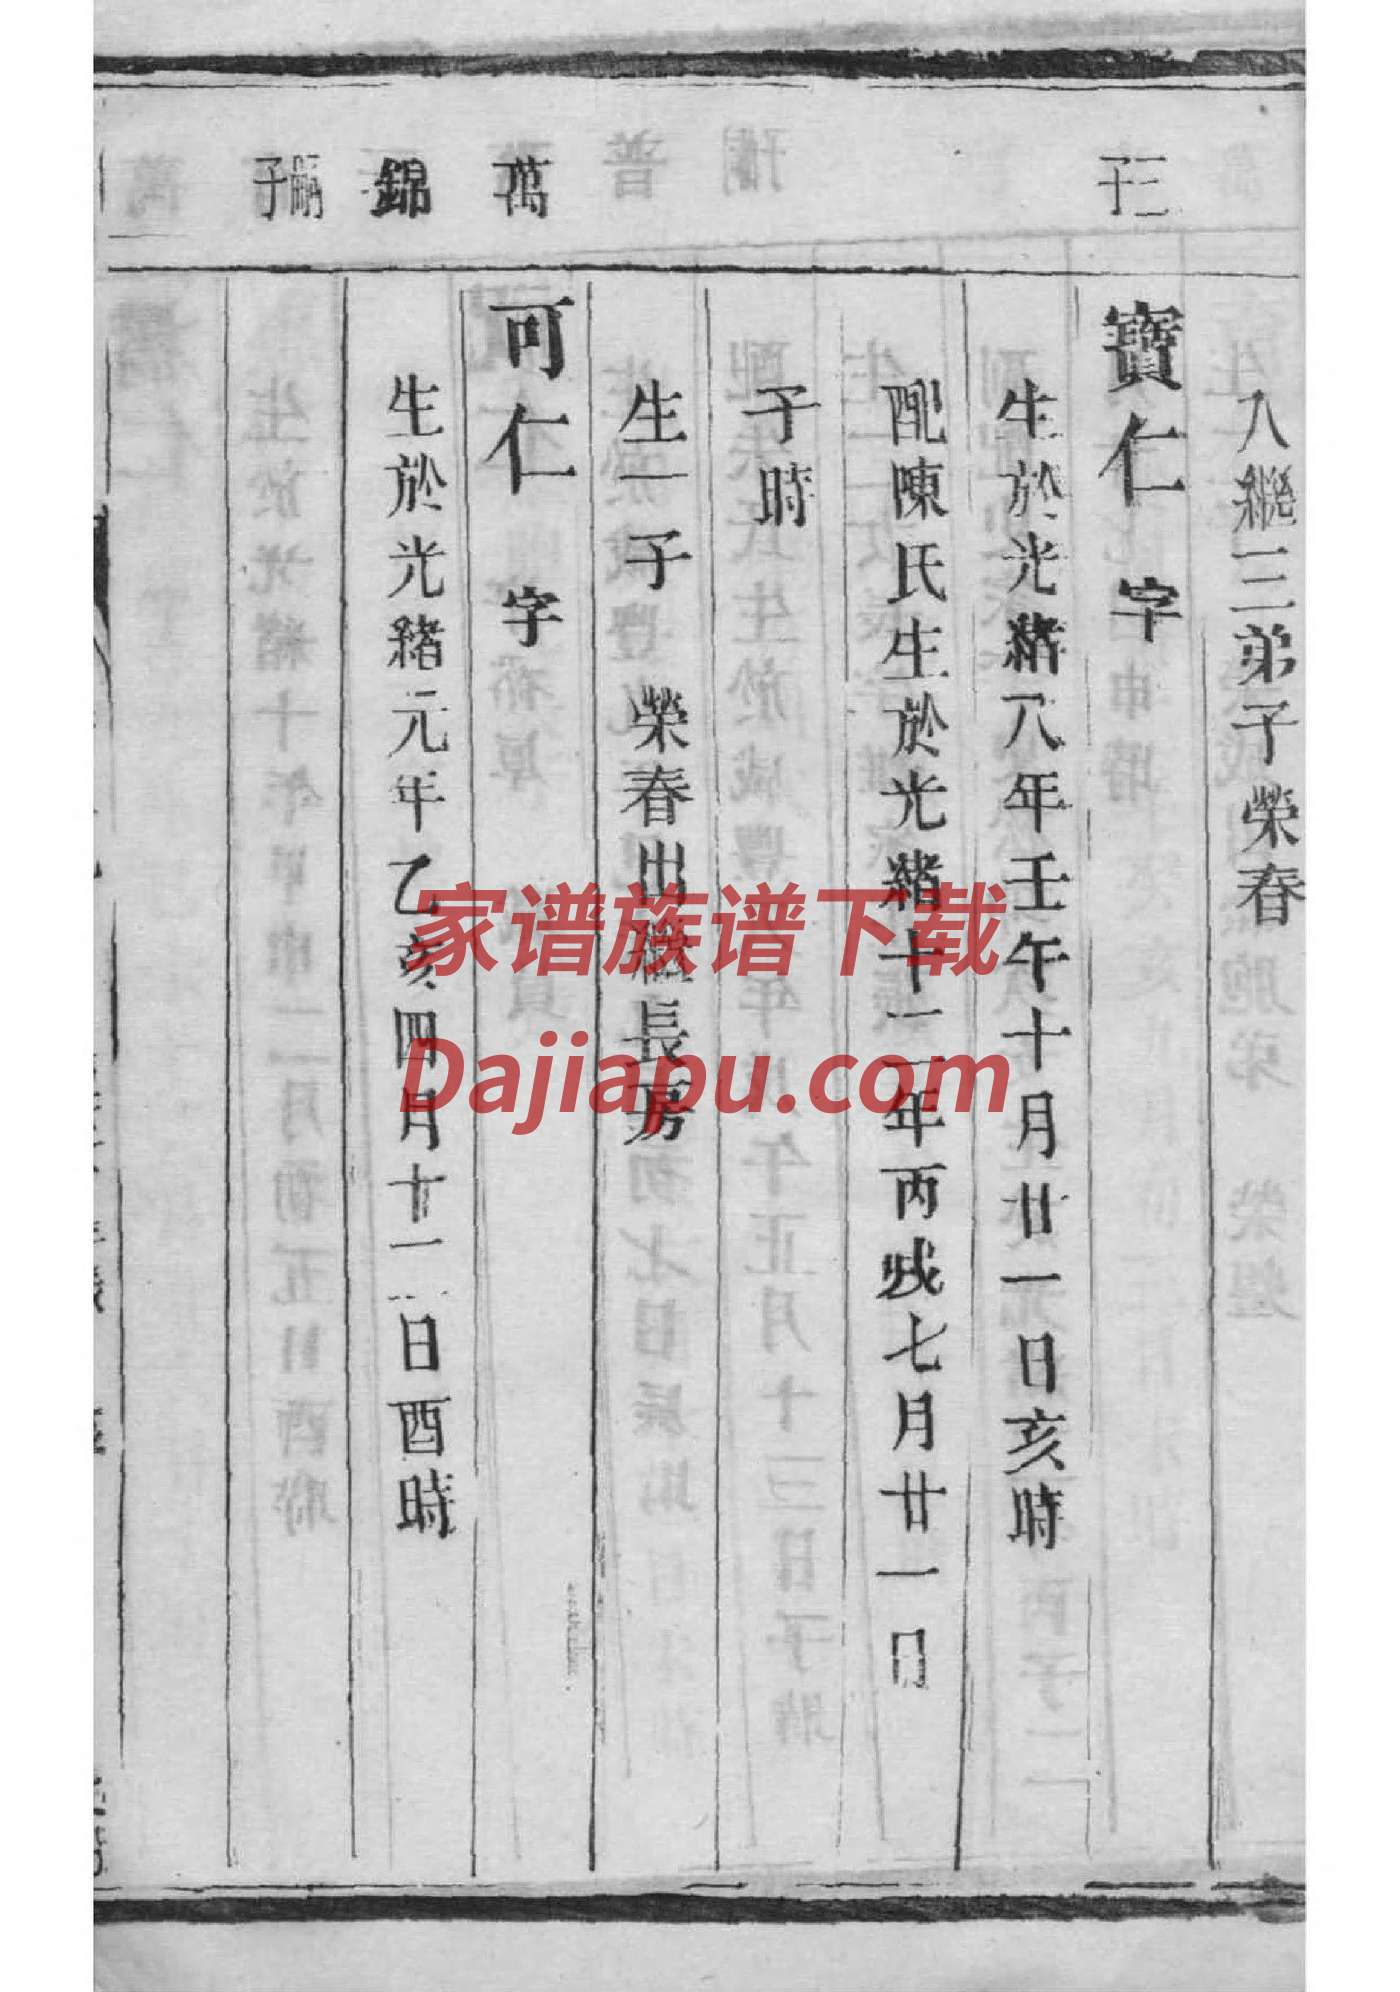 入繼三弟子榮春
三子
寶仁 字
生於光緒八年壬午十月廿一日亥時
配陳氏生於光緒十二年丙戌七月廿一日
子時
生一子 榮春出繼長房
萬
可仁 字
錦
生於光緒元年乙亥四月十一日酉時
嗣子
家谱族谱下载
Dajiapu.com